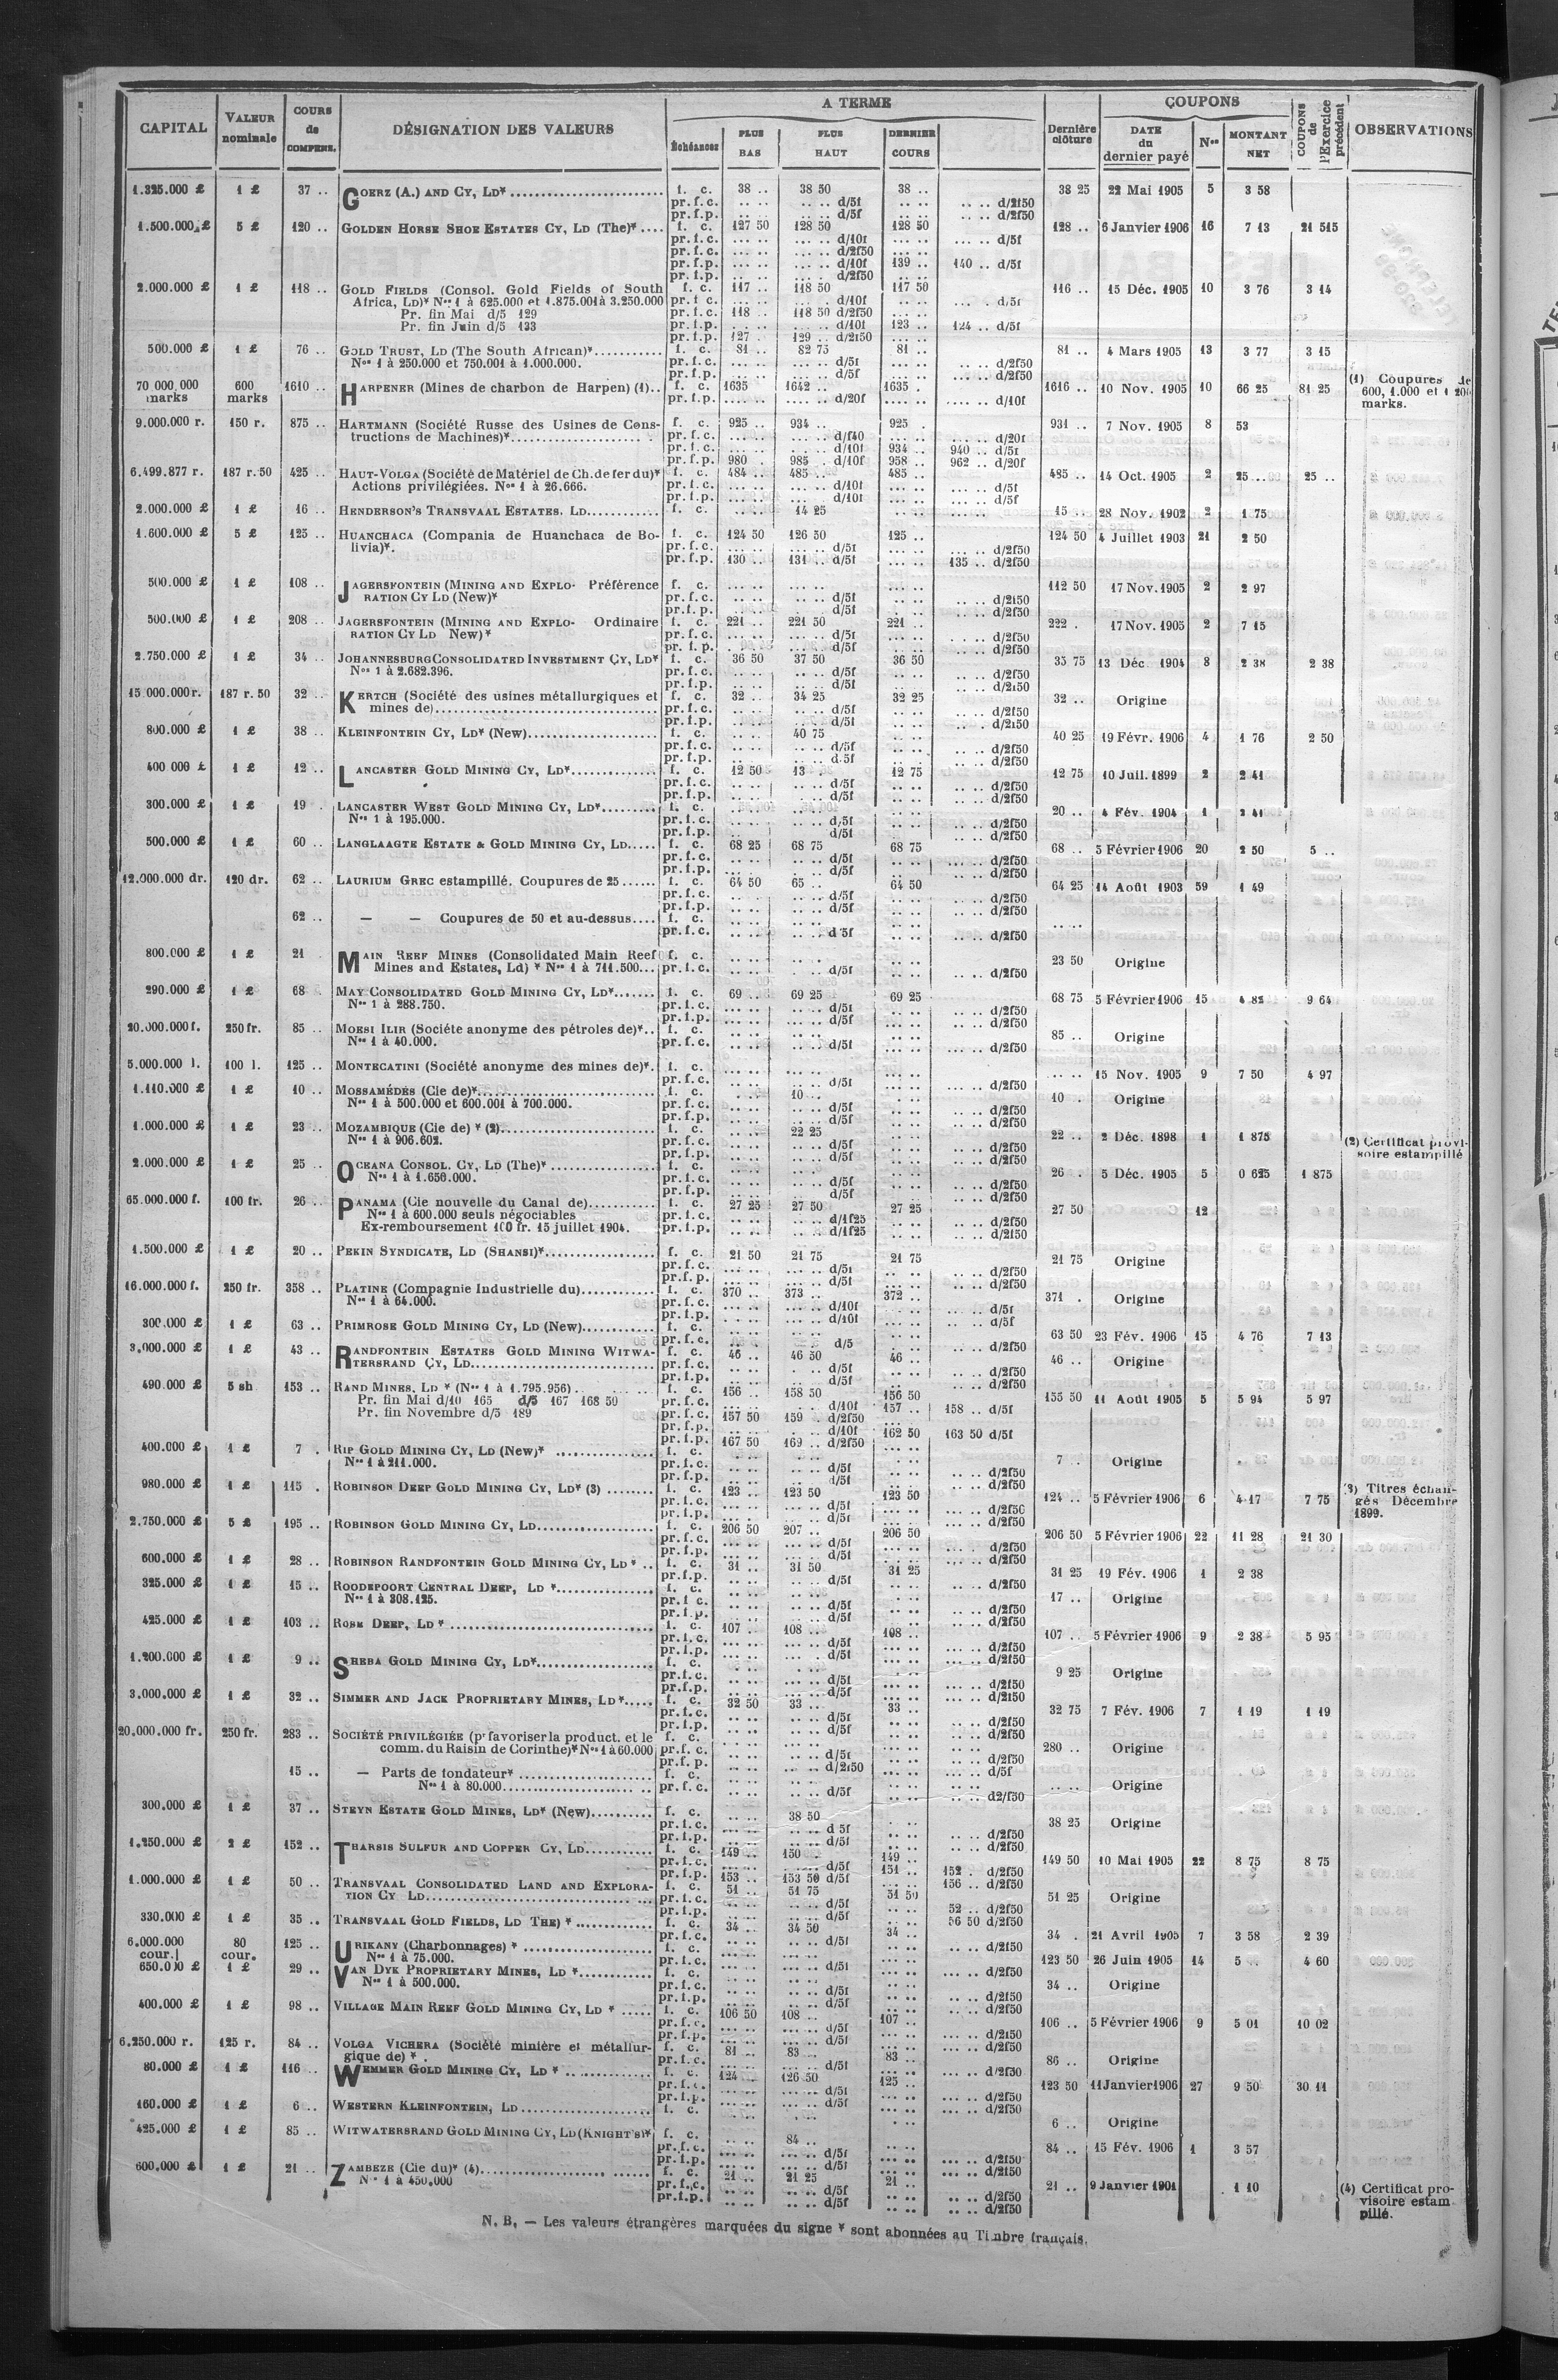 CAPITAL VALEUR nominale COURS de COMPENS. DÉSIGNATION DES VALEURS A TERME Échéances PLUS BAS PLUS HAUT DERNIER COURS Dernière clôture COUPONS DATE du dernier payé Nos MONTANT NET COUPONS de l'Exercice précédent OBSERVATIONS
1.325.000 £ 1 £ 37 .. GOERZ (A.) AND CY, LD* f. c. 38 .. 38 50 38 .. 38 25 22 Mai 1905 5 3 58
pr. f. c. .. .. .. .. d/5f .. .. .. .. d/2f50
pr. f. p. .. .. .. .. d/5f .. .. .. .. d/2f50
1.500.000 £ 5 £ 120 .. GOLDEN HORSE SHOE ESTATES CY, LD (The)* f. c. 127 50 128 50 128 50 128 .. 6 Janvier 1906 16 7 13 21 515
pr. f. c. ... .. ... .. d/10f ... .. ... .. d/5f
pr. f. c. ... .. ... .. d/2f50
pr. f. p. ... .. ... .. d/10f 139 .. 140 .. d/5f
pr. f. p. ... .. ... .. d/2f50
2.000.000 £ 1 £ 118 .. GOLD FIELDS (Consol. Gold Fields of South f. c. 117 .. 118 50 117 50 116 .. 15 Déc. 1905 10 3 76 3 14
Africa, LD)* Nos 1 à 625.000 et 1.875.001 à 3.250.000 pr. f. c. ... .. ... .. d/10f d/5f
Pr. fin Mai d/5 129 pr. f. c. 118 .. 118 50 d/2f50
Pr. fin Juin d/5 133 pr. f. p. ... .. d/10f 123 .. 124 .. d/5f
pr. f. p. 127 .. 129 .. d/2f50
500.000 £ 1 £ 76 .. GOLD TRUST, LD (The South African)* f. c. 81 .. 82 75 81 .. 81 .. 4 Mars 1905 13 3 77 3 15
Nos 1 à 250.000 et 750.001 à 1.000.000. pr. f. c. .. .. d/5f .. .. d/2f50
pr. f. p. .. .. d/5f .. .. d/2f50
70 000,000 marks 600 marks 1610 .. HARPENER (Mines de charbon de Harpen) (1).. f. c. 1635 1642 .. 1635 . 1616 .. 10 Nov. 1905 10 66 25 81 25 (1) Coupures de 600, 1.000 et 1 200 marks.
pr. f. p. .... .. .... .. d/20f .... .. .... .. d/10f
9.000.000 r. 150 r. 875 .. HARTMANN (Société Russe des Usines de Cons- f. c. 925 .. 934 .. 925 . 931 .. 7 Nov. 1905 8 53
tructions de Machines)* pr. f. c. ... .. d/f40 ... .. d/20f
pr. f. c. ... .. d/10f 934 .. 940 .. d/5f
pr. f. p. 980 . 985 . d/10f 958 .. 962 .. d/20f
6.499.877 r. 187 r. 50 425 .. HAUT-VOLGA (Société de Matériel de Ch. de fer du)* f. c. 484 .. 485 .. 485 .. 485 .. 14 Oct. 1905 2 25 .. 25 ..
Actions privilégiées. Nos 1 à 26.666. pr. f. c. ... .. d/10f ... .. d/5f
pr. f. p. ... .. d/10f ... .. d/5f
2.000.000 £ 1 £ 16 .. HENDERSON'S TRANSVAAL ESTATES. LD f. c. .. .. 14 25 15 .. 28 Nov. 1902 2 1 75
1.600.000 £ 5 £ 125 .. HUANCHACA (Compania de Huanchaca de Bo- f. c. 124 50 126 50 125 .. 124 50 4 Juillet 1903 21 2 50
livia)*. pr. f. c. ... .. d/5f ... .. d/2f50
pr. f. p. 130 .. 131 .. d/5f 135 .. d/2f50
500.000 £ 1 £ 108 .. JAGERSFONTEIN (MINING AND EXPLO- Préférence f. c. ... .. 112 50 17 Nov. 1905 2 2 97
RATION CY LD (New)* pr. f. c. ... .. d/5f .. .. d/2f50
pr. f. p. ... .. d/5f .. .. d/2f50
500.000 £ 1 £ 208 .. JAGERSFONTEIN (MINING AND EXPLO- Ordinaire f. c. 221 .. 221 50 221 .. 222 . 17 Nov. 1905 2 7 15
RATION CY LD New)* pr. f. c. ... .. d/5f .. .. d/2f50
pr. f. p. ... .. d/5f .. .. d/2f50
2.750.000 £ 1 £ 34 .. JOHANNESBURG CONSOLIDATED INVESTMENT CY, LD* f. c. 36 50 37 50 36 50 35 75 13 Déc. 1904 8 2 38 2 38
Nos 1 à 2.682.396. pr. f. c. .. .. d/5f .. .. d/2f50
pr. f. p. .. .. d/5f .. .. d/2f50
15.000.000 r. 187 r. 50 32 .. KERTCH (Société des usines métallurgiques et f. c. 32 .. 34 25 32 25 32 .. Origine
mines de) pr. f. c. .. .. d/5f .. .. d/2f50
pr. f. p. .. .. d/5f .. .. d/2f50
800.000 £ 1 £ 38 .. KLEINFONTEIN CY, LD* (New) f. c. .. .. 40 75 40 25 19 Févr. 1906 4 1 76 2 50
pr. f. c. .. .. d/5f .. .. d/2f50
pr. f. p. .. .. d/5f .. .. d/2f50
400 000 £ 1 £ 12 .. LANCASTER GOLD MINING CY, LD* f. c. 12 50 13 . 12 75 12 75 10 Juil. 1899 2 2 41
pr. f. c. .. .. d/5f .. .. d/2f50
pr. f. p. .. .. d/5f .. .. d/2f50
300.000 £ 1 £ 19 . LANCASTER WEST GOLD MINING CY, LD* f. c. 20 .. 4 Fév. 1904 1 2 41
Nos 1 à 195.000. pr. f. c. .. .. d/5f .. .. d/2f50
pr. f. p. d/5f .. .. d/2f50
500.000 £ 1 £ 60 .. LANGLAAGTE ESTATE & GOLD MINING CY, LD f. c. 68 25 68 75 68 75 68 .. 5 Février 1906 20 2 50 5 ..
pr. f. c. .. .. d/5f ... .. d/2f50
pr. f. p. .. .. d/5f ... .. d/2f50
12.000.000 dr. 120 dr. 62 .. LAURIUM GREC estampillé. Coupures de 25 f. c. 64 50 65 .. 64 50 64 25 14 Août 1903 59 1 49
pr. f. c. .. .. d/5f .. .. d/2f50
pr. f. p. .. .. d/5f .. .. d/2f50
62 .. — — Coupures de 50 et au-dessus.... f. c. .. ..
pr. f. c. .. .. d 5f .. .. d/2f50
800.000 £ 1 £ 21 MAIN REEF MINES (Consolidated Main Reef f. c. 23 50 Origine
Mines and Estates, Ld) * Nos 1 à 711.500... pr. f. c. .. .. d/5f .. .. d/2f50
290.000 £ 1 £ 68 . MAY CONSOLIDATED GOLD MINING CY, LD* f. c. 69 .. 69 25 69 25 68 75 5 Février 1906 15 4 82 9 64
Nos 1 à 288.750. pr. f. c. .. .. d/5f .. .. d/2f50
pr. f. p. .. .. d/5f .. .. d/2f50
20.000.000 f. 250 fr. 85 .. MORSI ILIR (Sociéte anonyme des pétroles de)*.. f. c. 85 .. Origine
Nos 1 à 40.000. pr. f. c. .. .. d/5f .. .. d/2f50
5.000.000 l. 100 l. 125 .. MONTECATINI (Société anonyme des mines de)*. f. c. ... .. 15 Nov. 1905 9 7 50 4 97
pr. f. c. ... .. d/5f ... .. d/2f50
1.110.000 £ 1 £ 10 .. MOSSAMÉDÈS (Cie de)* f. c. .. .. 10 .. 10 . Origine
Nos 1 à 500.000 et 600.001 à 700.000. pr. f. c. .. .. d/5f .. .. d/2f50
pr. f. p. .. .. d/5f .. .. d/2f50
1.000.000 £ 1 £ 23 .. MOZAMBIQUE (Cie de) * (2) f. c. .. .. 22 25 22 .. 2 Déc. 1898 1 1 875 (2) Certificat provi-
Nos 1 à 906.602. pr. f. c. .. .. d/5f .. .. d/2f50 soire estampillé
pr. f. p. .. .. d/5f .. .. d/2f50
2.000.000 £ 1 £ 25 .. OCEANA CONSOL. CY, LD (The)* f. c. 26 . 5 Déc. 1905 5 0 625 1 875
Nos 1 à 1.656.000. pr. f. c. .. .. d/5f .. .. d/2f50
pr. f. p. .. .. d/5f .. .. d/2f50
65.000.000 f. 100 fr. 26 .. PANAMA (Cie nouvelle du Canal de) f. c. 27 25 27 50 27 25 27 50 12
Nos 1 à 600.000 seuls négociables pr. f. c. .. .. d/1f25 .. .. d/2f50
Ex-remboursement 100 fr. 15 juillet 1904. pr. f. p. .. .. d/1f25 .. .. d/2f50
1.500.000 £ 1 £ 20 .. PEKIN SYNDICATE, LD (SHANSI)* f. c. 21 50 21 75 21 75 21 75 Origine
pr. f. c. .. .. d/5f .. .. d/2f50
pr. f. p. .. .. d/5f .. .. d/2f50
16.000.000 f. 250 fr. 358 .. PLATINE (Compagnie Industrielle du) f. c. 370 .. 373 .. 372 .. 371 . Origine
Nos 1 à 64.000. pr. f. c. ... .. d/10f ... .. d/5f
pr. f. p. ... .. d/10f ... .. d/5f
300.000 £ 1 £ 63 .. PRIMROSE GOLD MINING CY, LD (New) f. c. 63 50 23 Fév. 1906 15 4 76 7 13
pr. f. c. .. .. d/5 .. .. d/2f50
3.000.000 £ 1 £ 43 .. RANDFONTEIN ESTATES GOLD MINING WITWA- f. c. 46 .. 46 50 46 .. 46 .. Origine
TERSRAND CY, LD pr. f. c. .. .. d/5f .. .. d/2f50
pr. f. p. .. .. d/5f .. .. d/2f50
490.000 £ 5 sh 153 .. RAND MINES, LD * (Nos 1 à 1.795.956) f. c. 156 .. 158 50 156 50 155 50 11 Août 1905 5 5 94 5 97
Pr. fin Mai d/10 165 d/5 167 168 50 pr. f. c. ... .. d/10f 157 .. 158 .. d/5f
Pr. fin Novembre d/5 189 pr. f. c. 157 50 159 . d/2f50
pr. f. p. ... .. d/10f 162 50 163 50 d/5f
pr. f. p. 167 50 169 .. d/2f50
400.000 £ 1 £ 7 . RIP GOLD MINING CY, LD (New)* f. c. 7 . Origine
Nos 1 à 211.000. pr. f. c. .. .. d/5f .. .. d/2f50
pr. f. p. .. .. d/5f .. .. d/2f50
980.000 £ 1 £ 115 . ROBINSON DEEP GOLD MINING CY, LD* (3) f. c. 123 .. 123 50 123 50 124 .. 5 Février 1906 6 4 17 7 75 (3) Titres échan-
pr. f. c. ... .. d/5f ... .. d/2f50 gés Décembre
pr. f. p. ... .. d/5f ... .. d/2f50 1899.
2.750.000 £ 5 £ 195 .. ROBINSON GOLD MINING CY, LD f. c. 206 50 207 .. 206 50 206 50 5 Février 1906 22 11 28 21 30
pr. f. c. ... .. d/5f ... .. d/2f50
pr. f. p. ... .. d/5f ... .. d/2f50
600.000 £ 1 £ 28 .. ROBINSON RANDFONTEIN GOLD MINING CY, LD* .. f. c. 31 .. 31 50 31 25 31 25 19 Fév. 1906 1 2 38
pr. f. p. .. .. d/5f .. .. d/2f50
325.000 £ 1 £ 15 .. ROODEPOORT CENTRAL DEEP, LD * f. c. 17 .. Origine
Nos 1 à 308.125. pr. f c. .. .. d/5f .. .. d/2f50
pr. f. p. .. .. d/5f .. .. d/2f50
425.000 £ 1 £ 103 .. ROSE DEEP, LD * f. c. 107 . 108 .. 108 .. 107 .. 5 Février 1906 9 2 38 5 95
pr. f. c. ... .. d/5f ... .. d/2f50
pr. f. p. ... .. d/5f ... .. d/2f50
1.200.000 £ 1 £ 9 .. SHEBA GOLD MINING CY, LD* f. c. 9 25 Origine
pr. f. c. .. .. d/5f .. .. d/2f50
pr. f. p. .. .. d/5f .. .. d/2f50
3.000.000 £ 1 £ 32 .. SIMMER AND JACK PROPRIETARY MINES, LD* f. c. 32 50 33 .. 33 .. 32 75 7 Fév. 1906 7 1 19 1 19
pr. f. c. .. .. d/5f .. .. d/2f50
pr. f. p. .. .. d/5f .. .. d/2f50
20.000.000 fr. 250 fr. 283 .. SOCIÉTÉ PRIVILÉGIÉE (pr favoriser la product. et le f. c. 280 .. Origine
comm. du Raisin de Corinthe)* Nos 1 à 60.000 pr. f. c. ... .. d/5f ... .. d/2f50
pr. f. p. ... .. d/2f50 ... .. d/5f
15 .. — Parts de fondateur* f. c. .. .. Origine
Nos 1 à 80.000 pr. f. c. .. .. d/5f .. .. d2/f50
300.000 £ 1 £ 37 .. STEYN ESTATE GOLD MINES, LD* (New) f. c. .. .. 38 50 38 25 Origine
pr. f. c. .. .. d 5f .. .. d/2f50
pr. f. p. .. .. d/5f .. .. d/2f50
1.250.000 £ 2 £ 152 .. THARSIS SULFUR AND COPPER CY, LD f. c. 149 .. 150 .. 149 .. 149 50 10 Mai 1905 22 8 75 8 75
pr. f. c. ... .. d/5f 151 .. 152 . d/2f50
pr. f. p. 153 .. 153 50 d/5f ... .. 156 .. d/2f50
1.000.000 £ 1 £ 50 .. TRANSVAAL CONSOLIDATED LAND AND EXPLORA- f. c. 51 .. 51 75 51 50 51 25 Origine
TION CY LD pr. f. c. .. .. d/5f 52 .. d/2f50
pr. f. p. .. .. d/5f 56 50 d/2f50
330.000 £ 1 £ 35 .. TRANSVAAL GOLD FIELDS, LD THE) * f. c. 34 .. 34 50 34 .. 34 . 21 Avril 1905 7 3 58 2 39
pr. f. c. .. .. d/5f .. .. d/2f50
6.000.000 cour. 80 cour. 125 .. URIKANY (Charbonnages) * f. c. 123 50 26 Juin 1905 14 5 .. 4 60
Nos 1 à 75.000. pr. f. c. ... .. d/5f ... .. d/2f50
650.000 £ 1 £ 29 .. VAN DYK PROPRIETARY MINES, LD * f. c. 34 .. Origine
Nos 1 à 500.000. pr. f. c. .. .. d/5f .. .. d/2f50
pr. f. p. .. .. d/5f .. .. d/2f50
400.000 £ 1 £ 98 .. VILLAGE MAIN REEF GOLD MINING CY, LD * f. c. 106 50 108 .. 107 .. 106 .. 5 Février 1906 9 5 01 10 02
pr. f. c. ... .. d/5f ... .. d/2f50
pr. f. p. ... .. d/5f ... .. d/2f50
6.250.000 r. 125 r. 84 .. VOLGA VICHERA (Société minière et métallur- f. c. 81 .. 83 .. 83 .. 86 .. Origine
gique de) * . pr. f. c. .. .. d/5f .. .. d/2f50
80.000 £ 1 £ 116 .. WEMMER GOLD MINING CY, LD * f. c. 124 .. 126 50 125 .. 123 50 11 Janvier 1906 27 9 50 30 11
pr. f. c. ... .. d/5f ... .. d/2f50
pr. f. p. ... .. d/5f ... .. d/2f50
160.000 £ 1 £ 6 .. WESTERN KLEINFONTEIN, LD f. c. 6 .. Origine
425.000 £ 1 £ 85 .. WITWATERSRAND GOLD MINING CY, LD (KNIGHT'S)* f. c. 84 .. 84 .. 15 Fév. 1906 1 3 57
pr. f. c. ... .. d/5f ... .. d/2f50
pr. f. p. ... .. d/5f ... .. d/2f50
600.000 £ 1 £ 21 .. ZAMBEZE (Cie du)* (4) f. c. 21 .. 21 25 21 .. 21 .. 9 Janvier 1901 1 10 (4) Certificat pro-
Nos 1 à 450.000 pr. f. c. .. .. d/5f .. .. d/2f50 visoire estam
pr. f. p. .. .. d/5f .. .. d/2f50 pillé.
N. B. — Les valeurs étrangères marquées du signe * sont abonnées au Timbre français.